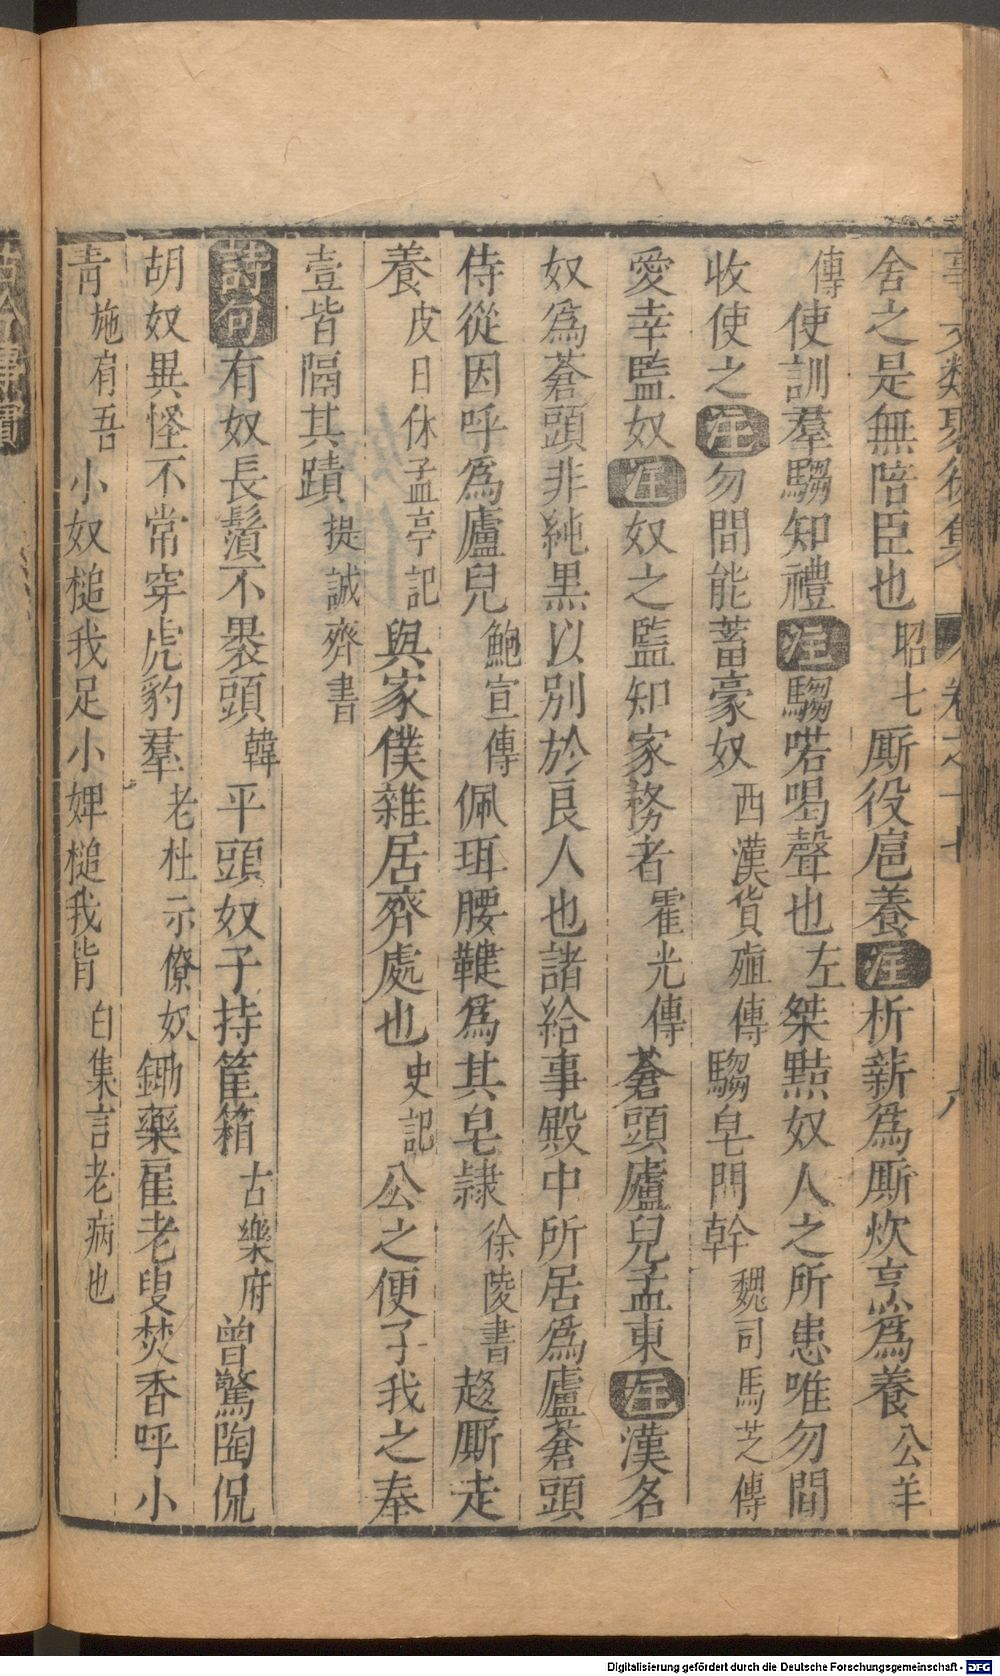 事文類聚後集 卷之十七 八
舍之是無陪臣也昭七厮役扈養注析薪爲厮炊烹爲養公羊
傳使訓羣騶知禮注騶喏喝聲也左桀黠奴人之所患唯勿間
收使之注勿間能蓄豪奴西漢貨殖傳騶皂閈幹魏司馬芝傳
愛幸監奴注奴之監知家務者霍光傳蒼頭廬兒孟東注漢名
奴爲蒼頭非純黒以別於良人也諸給事殿中所居爲廬蒼頭
侍從因呼爲廬兒鮑宣傳佩珥腰鞬爲其皂隷徐陵書趍厮走
養皮日休孟亭記與家僕雜居齊處也史記公之便子我之奉
壹皆隔其蹟提誠齊書
詩句有奴長鬚不褁頭韓平頭奴子持筐箱古樂府曾驚陶侃
胡奴異怪不常穿虎豹羣老杜示僚奴鋤藥雇老叟焚香呼小
青施肩吾小奴槌我足小婢槌我背白集言老病也
Digitalisierung gefördert durch die Deutsche Forschungsgemeinschaft - DFG